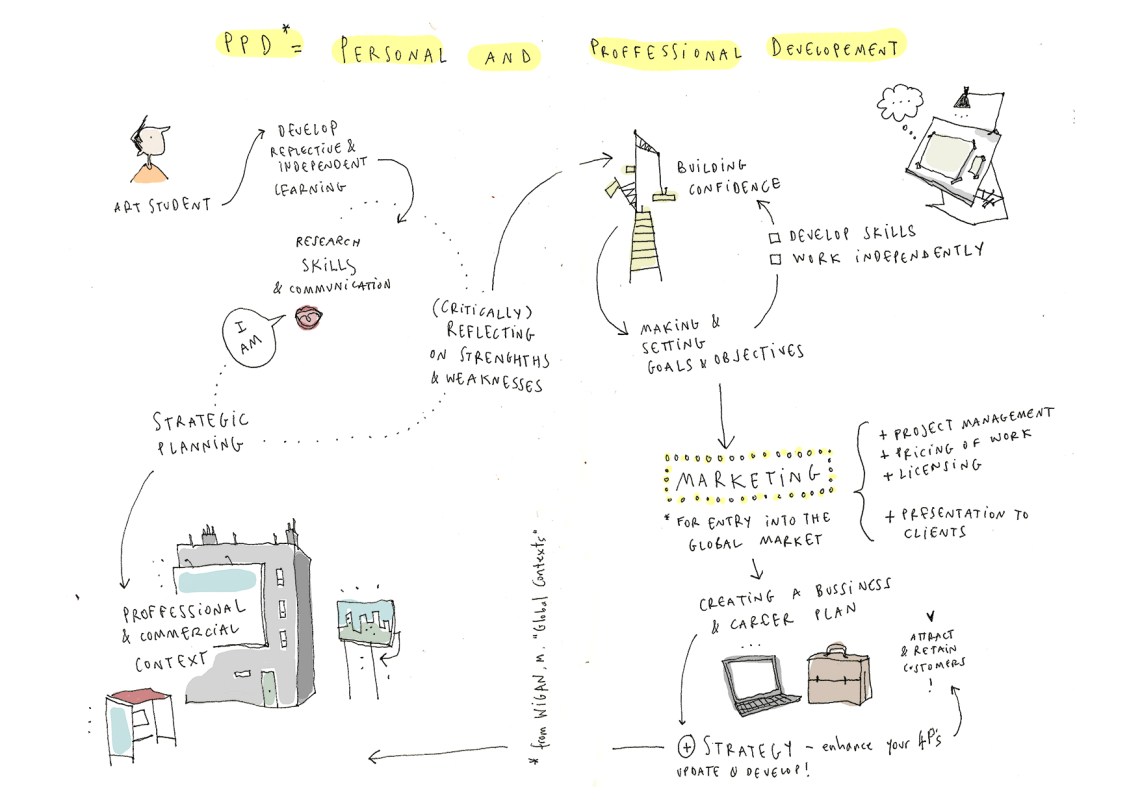 PPD* = PERSONAL AND PROFFESSIONAL DEVELOPEMENT
ART STUDENT
DEVELOP
REFLECTIVE &
INDEPENDENT
LEARNING
RESEARCH
SKILLS
& COMMUNICATION
I
AM
STRATEGIC
PLANNING
PROFFESSIONAL
& COMMERCIAL
CONTEXT
(CRITICALLY)
REFLECTING
ON STRENGHTHS
& WEAKNESSES
BUILDING
CONFIDENCE
DEVELOP SKILLS
WORK INDEPENDENTLY
MAKING &
SETTING
GOALS & OBJECTIVES
MARKETING
* FOR ENTRY INTO THE
GLOBAL MARKET
+ PROJECT MANAGEMENT
+ PRICING OF WORK
+ LICENSING
+ PRESENTATION TO
CLIENTS
CREATING A BUSSINESS
& CAREER PLAN
ATTRACT
& RETAIN
CUSTOMERS
!
+ STRATEGY - enhance your 4P's
UPDATE & DEVELOP!
* from WIGAN, M. "Global Contexts"